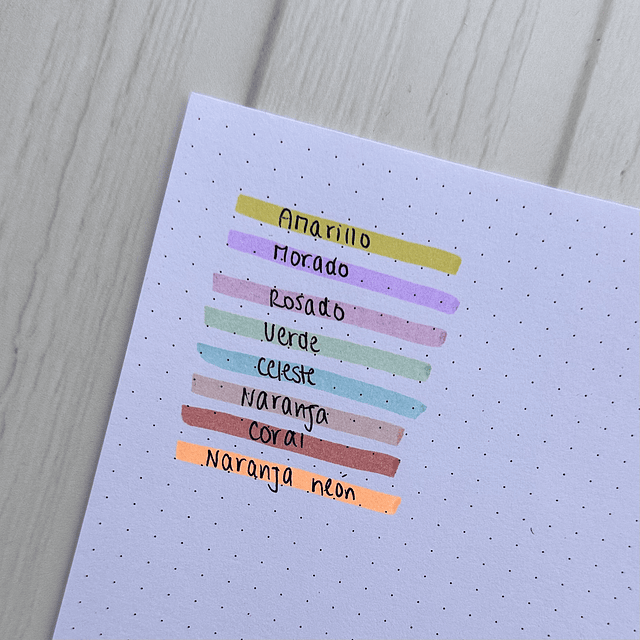 Amarillo
Morado
Rosado
Verde
celeste
Naranja
coral
Naranja neón